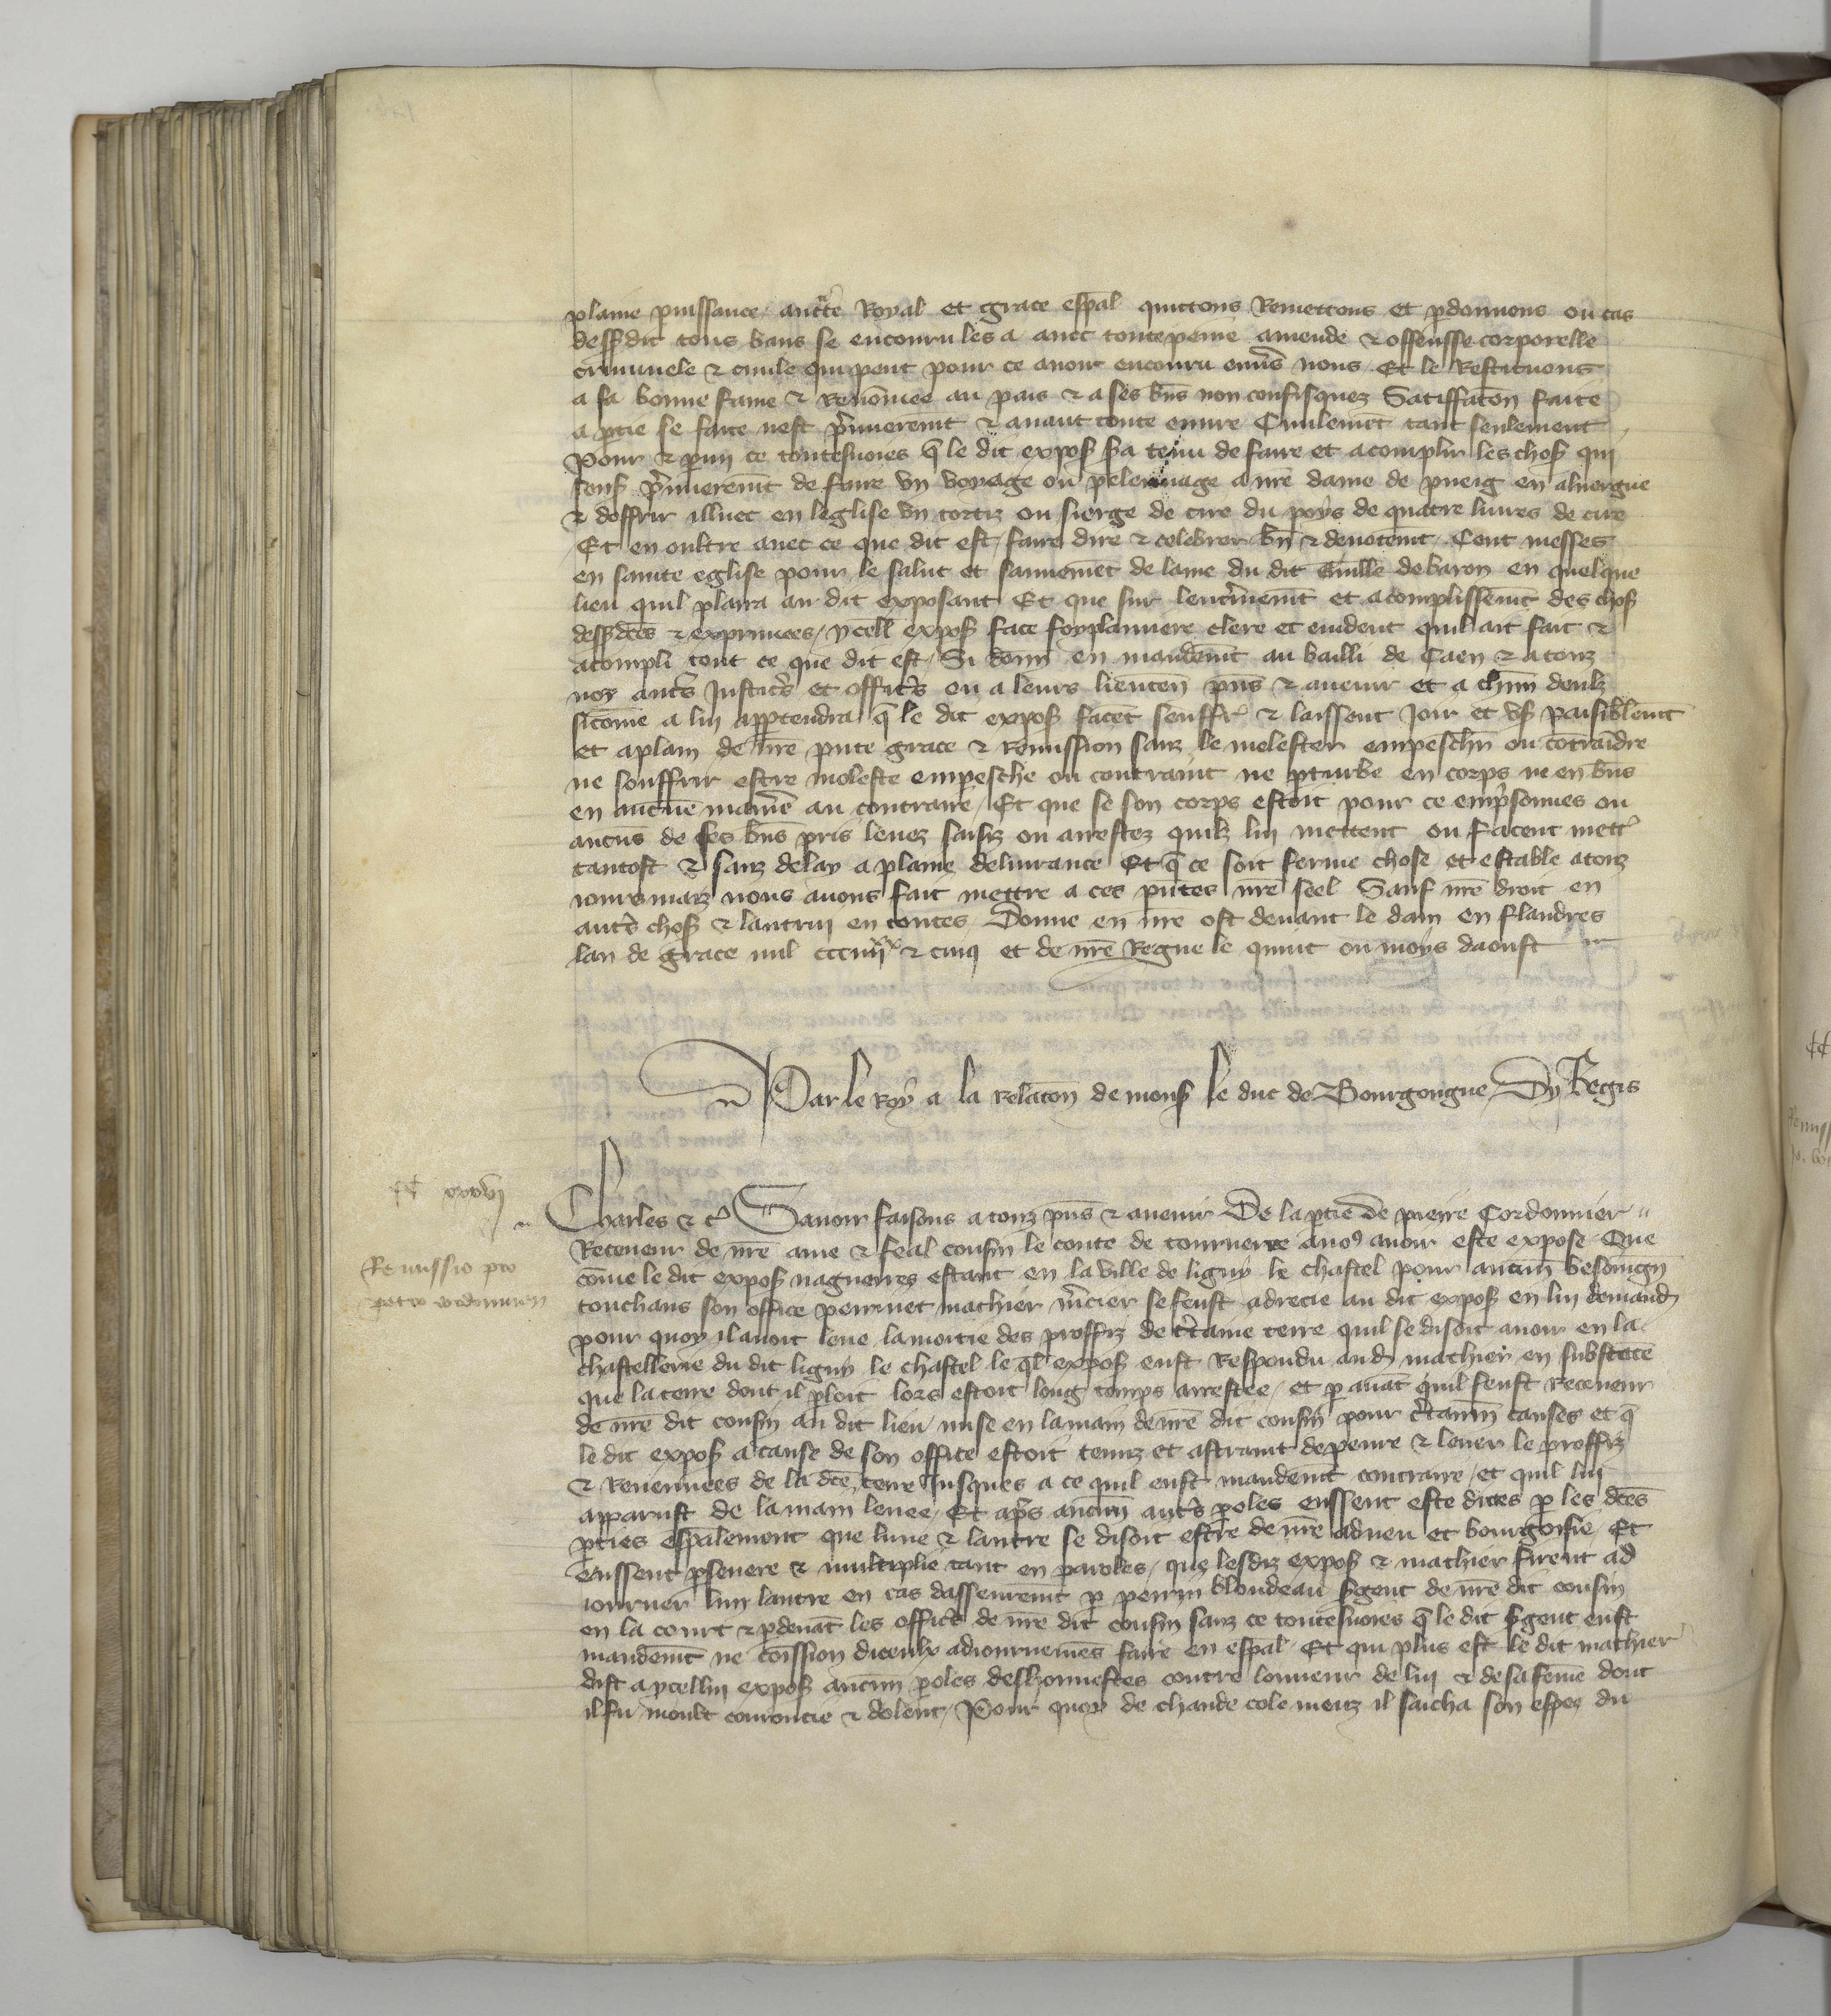 plaine puissance auctte Royal et grace espal quictons Remettons et pdonnons ou cas
dessdit tous bans se encouru les a auec toute peine amende & offensse corporelle
criminele & ciuile qui peut pour ce auoir encouru enuers nous Et le Restituons
a sa bonne fame & Renomee au pais & a ses bns non confisquez Satiffacon faicte
a ptie se faicte nest pmierement & auant toute euure Ciuilemet tant seulement
Pour & pmy ce toutesuoies q le dit expos sa tenu de faire et acomplir les chos qui
sens pmierement de faire vn voyage ou pelerinage a nre dame de pueig en aluergue
& doffrir illuec en leglise vn tortiz ou sierge de cire du poys de quatre liures de cire
Et en oultre auec ce que dit est faire dire & celebrer bn & deuotemt Cent messes
en saincte eglise pour le salut et sauuemet de lame du dit Guille de baron en quelque
lieu quil plaira au dit exposant Et que sur lenterinemt et acomplissemt des chos
dessdces & exprimees ycell expos face foy planiere clere et euident quil ait fait &
acompli tout ce que dit est Si donn en mandemt au bailli de Caen & a touz
noz autrs Justiciers et officrs ou a leurs lieuten pns & auenir et a chun deulz
sicome a lui appartendra q le dit expos facet seuffr & laissent Joir et vs paisiblemt
et aplain de nre pnte grace & remission sanz le molester empeschn ou cotraindre
ne souffrir estre moleste empesche ou contraint ne pturbe en corps ne en bns
en aucune manie au contraire Et que se son corps estoit pour ce empsonnes ou
aucus de ses bns pris leuez saisiz ou arrestez quilz lui mettent ou facent mettr
tantost & sanz delay a plaine deliurance Et q ce soit ferme chose et estable a touz
iourmaiz nous auons fait mettre a ces pntes nre seel Sauf nre droit en
autrs chos & lautruy en toutes Donne en nre ost deuant le dam en flandres
lan de grace mil ccciiiixx & cinq et de nre Regne le quint ou moys daoust
Par le roy a la relacon de mons le duc de Bourgongne Dy Regis
CC xxxvi
Charles & c Sauoir faisons a touz pns & auenir De la ptie de pierre Cordonnier
Receueur de nre ame & feal cousin le conte de tonnerre a nos auoir este expose Que
Remissio pro
petro cordonnien
come le dit expos nagueires estant en la ville de ligny le chastel pour aucun besoingn
touchans son office perrinet mathier mcier se feust adrecie au dit expos en lui demand
pour quoy il auoit leue la moitie des proffiz de ctaine terre quil se disoit auoir en la
chastellerie du dit ligny le chastel le ql expos eust Respondu aud mathier en substece
que la terre dont il ploit lors estoit long temps arrestee et p auat quil feust receueur
de nre dit cousin au dit lieu mise en la main de nre dit cousin pour ctainn causes et q
le dit expos a cause de son office estoit tenuz et astraint de penre & leuer le proffiz
& Reuenuees de la dce terre Jusques a ce quil eust mandemt contraire et quil lui
apparust de la main leuee Et aprs aucunn autrs poles eussent este dictes p les dces
pties espalement que lune & lautre se disoit estre de nre adueu et bourgoisie Et
eussent pseuere & multiplie tant en paroles que lesdiz expos & mathier firent ad
iourner lun lautre en cas dasseuremt p perrin blondeau sgent de nre dit cousin
en la court & pdeuat les officrs de nre dit cousin sanz ce toutesuoies q le dit sgent eust
mandemt ne comission diceulx adiournemes faire en espal Et qui plus est le dit mathier
dist a ycellui expos aucunn poles deshonnestes contre lonneur de lui & de sa feme dont
il fu moult courroucie & dolent Pour quoy de chaude cole meuz il saicha son espee du